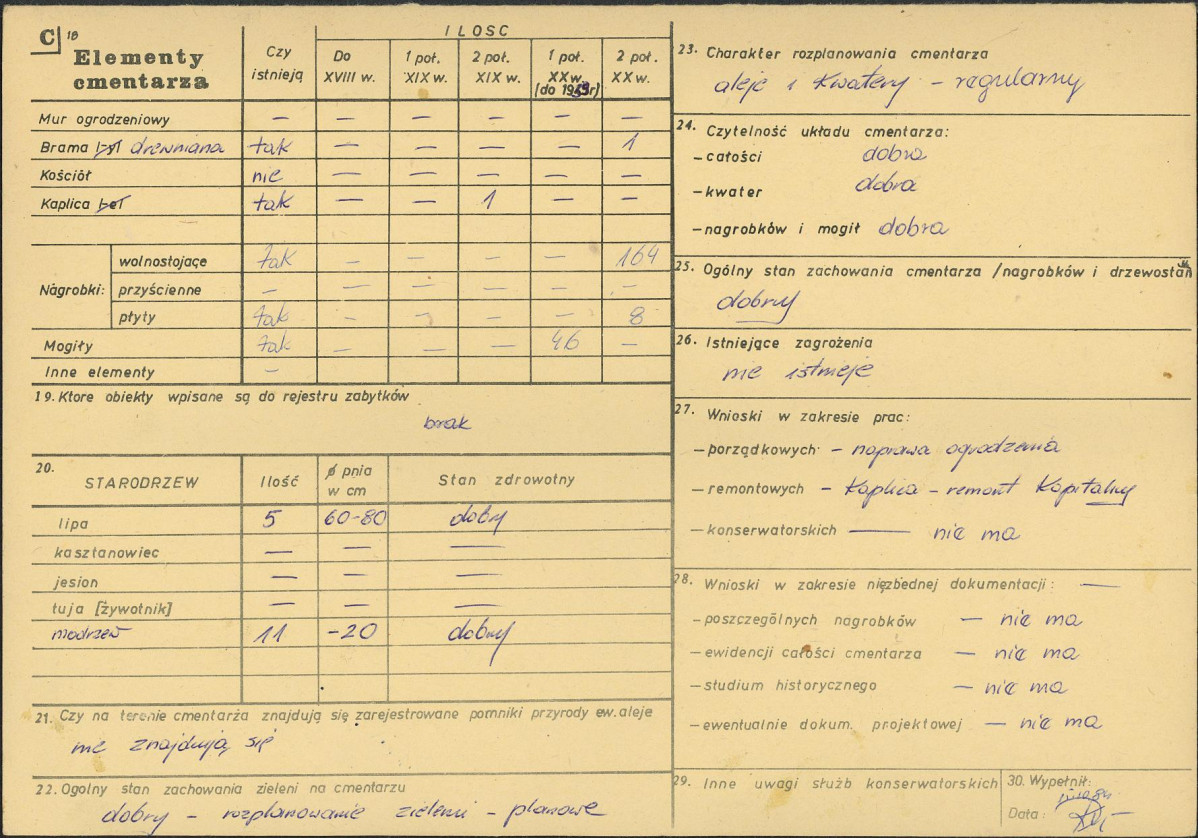 C 18
Elementy cmentarza
Czy istnieją
ILOSC
Do XVIII w.
1 poł. XIX w.
2 poł. XIX w.
1 poł. XX w. (do 1959r)
2 poł. XX w.
Mur ogrodzeniowy — — — — — —
Brama drewniana tak — — — — 1
Kościół nie — — — — —
Kaplica tak — — 1 — —
Nagrobki:
wolnostojące tak — — — — 164
przyścienne — — — — — —
płyty tak — — — — 8
Mogiły tak — — — 46 —
Inne elementy —
19. Ktore obiekty wpisane są do rejestru zabytków
brak
20. STARODRZEW Ilość ø pnia w cm Stan zdrowotny
lipa 5 60-80 dobry
kasztanowiec — — —
jesion — — —
tuja [żywotnik] — — —
modrzew 11 -20 dobry
21. Czy na terenie cmentarza znajdują się zarejestrowane pomniki przyrody ew. aleje
nie znajdują się
22. Ogolny stan zachowania zieleni na cmentarzu
dobry - rozplanowanie zieleni - planowe
23. Charakter rozplanowania cmentarza
aleje i kwatery - regularny
24. Czytelność układu cmentarza:
- całości dobra
- kwater dobra
- nagrobków i mogił dobra
25. Ogólny stan zachowania cmentarza /nagrobków i drzewostan
dobry
26. Istniejące zagrożenia
nie istnieje
27. Wnioski w zakresie prac:
- porządkowych - naprawa ogrodzenia
- remontowych - Kaplica - remont Kapitalny
- konserwatorskich — nie ma
28. Wnioski w zakresie niezbędnej dokumentacji: —
- poszczególnych nagrobków — nie ma
- ewidencji całości cmentarza — nie ma
- studium historycznego — nie ma
- ewentualnie dokum. projektowej — nie ma
29. Inne uwagi służb konserwatorskich
30. Wypełnił:
Data: